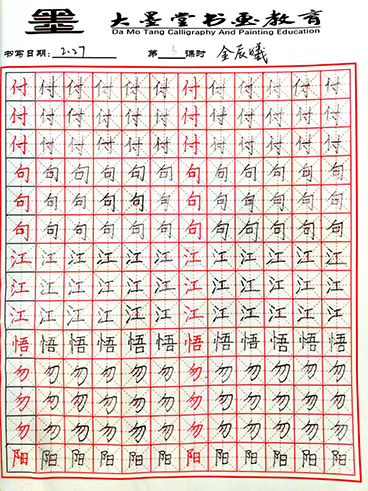 大墨堂书画教育
Da Mo Tang Calligraphy And Painting Education
书写日期: 2.27 第 5 课时 金辰曦
付付付付付付付付付付付付
付付付付付付付付付付付付
付付付付付付付付付付付付
句句句句句句句句句句句句
句句句句句句句句句句句句
句句句句句句句句句句句句
江江江江江江江江江江江江
江江江江江江江江江江江江
江江江江江江江江江江江江
悟悟悟悟悟悟悟悟悟悟悟悟
勿勿勿勿勿勿勿勿勿勿勿勿
勿勿勿勿勿勿勿勿勿勿勿勿
勿勿勿勿勿勿勿勿勿勿勿勿
阳阳阳阳阳阳阳阳阳阳阳阳